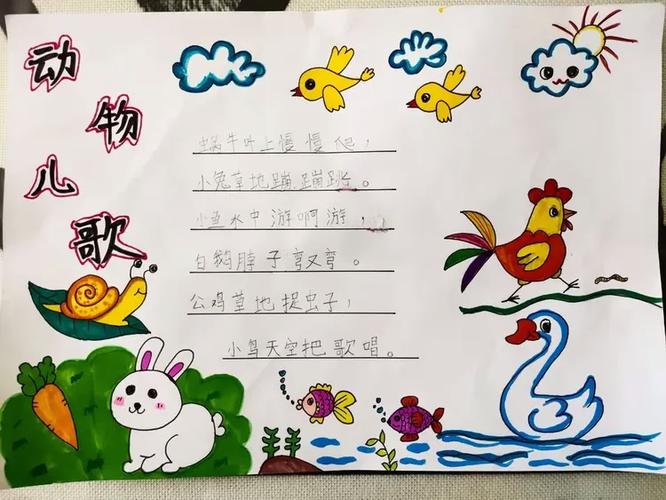 动物儿歌
蜗牛叶上慢慢爬，
小兔草地蹦蹦跳。
小鱼水中游啊游，
白鹅脖子弯又弯。
公鸡草地捉虫子，
小鸟天空把歌唱。